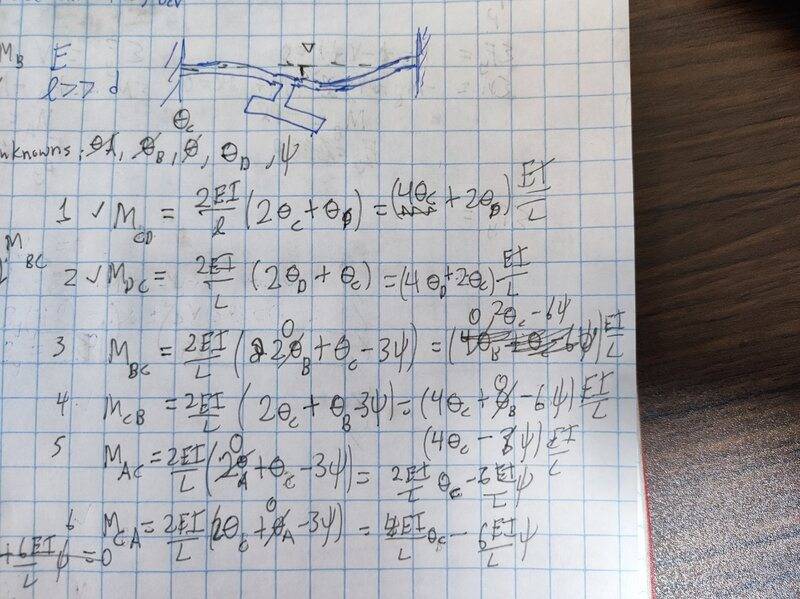 M_B E
l >> d
θ_C
nknowns: θ_A, θ_B, θ, θ_D, ψ
1 ✓ M_CD = 2EI/l (2θ_C + θ_D) = (4θ_C + 2θ_D) EI/L
M_BC
2 ✓ M_DC = 2EI/L (2θ_D + θ_C) = (4θ_D + 2θ_C) EI/L
0 2θ_C - 6ψ
3 M_BC = 2EI/L (2θ_B + θ_C - 3ψ) = ( ) EI/L
4 M_CB = 2EI/L (2θ_C + θ_B - 3ψ) = (4θ_C + θ_B - 6ψ) EI/L
(4θ_C - ψ) EI/L
5 M_AC = 2EI/L (2θ_A + θ_C - 3ψ) = 2EI/L θ_C - 6EI/L ψ
6 M_CA = 2EI/L (2θ_C + θ_A - 3ψ) = 4EI/L θ_C - 6EI/L ψ
+ 6EI/L ψ = 0